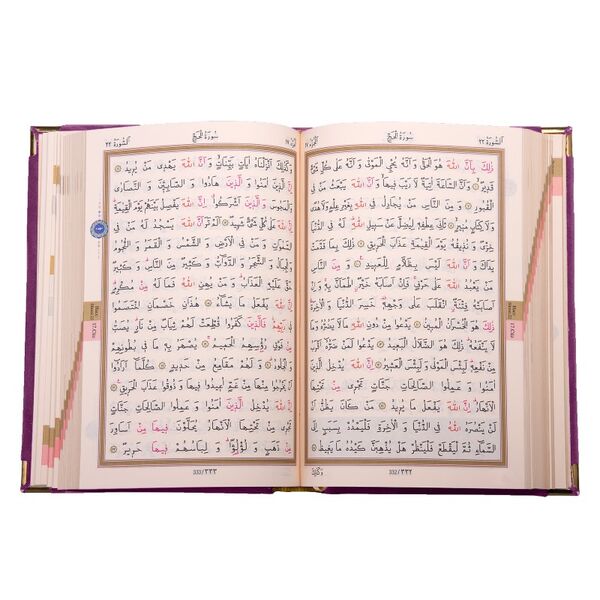 اَلسُّورَةُ ٢٢
سُورَةُ الْحَجِّ
ذٰلِكَ بِاَنَّ اللّٰهَ هُوَ الْحَقُّ وَ اَنَّهُ يُحْيِ الْمَوْتٰى وَ اَنَّهُ عَلٰى كُلِّ شَيْءٍ
قَدِيرٌ وَ اَنَّ السَّاعَةَ اٰتِيَةٌ لَا رَيْبَ فِيهَا وَ اَنَّ اللّٰهَ يَبْعَثُ مَنْ فِي
الْقُبُورِ وَ مِنَ النَّاسِ مَنْ يُجَادِلُ فِي اللّٰهِ بِغَيْرِ عِلْمٍ وَ لَا هُدًى
وَ لَا كِتَابٍ مُنِيرٍ ثَانِيَ عِطْفِهِ لِيُضِلَّ عَنْ سَبِيلِ اللّٰهِ لَهُ فِي الدُّنْيَا
خِزْيٌ وَ نُذِيقُهُ يَوْمَ الْقِيٰمَةِ عَذَابَ الْحَرِيقِ ذٰلِكَ بِمَا قَدَّمَتْ
يَدَاكَ وَ اَنَّ اللّٰهَ لَيْسَ بِظَلَّامٍ لِلْعَبِيدِ وَ مِنَ النَّاسِ
مَنْ يَعْبُدُ اللّٰهَ عَلٰى حَرْفٍ فَاِنْ اَصَابَهُ خَيْرٌ اطْمَاَنَّ بِهِ وَ اِنْ
اَصَابَتْهُ فِتْنَةٌ انْقَلَبَ عَلٰى وَجْهِهِ خَسِرَ الدُّنْيَا وَ الْاٰخِرَةَ
ذٰلِكَ هُوَ الْخُسْرَانُ الْمُبِينُ يَدْعُوا مِنْ دُونِ اللّٰهِ مَا لَا يَضُرُّهُ وَ مَا
لَا يَنْفَعُهُ ذٰلِكَ هُوَ الضَّلَالُ الْبَعِيدُ يَدْعُوا لَمَنْ ضَرُّهُ اَقْرَبُ
مِنْ نَفْعِهِ لَبِئْسَ الْمَوْلٰى وَ لَبِئْسَ الْعَشِيرُ اِنَّ اللّٰهَ يُدْخِلُ
الَّذِينَ اٰمَنُوا وَ عَمِلُوا الصَّالِحَاتِ جَنَّاتٍ تَجْرِي مِنْ تَحْتِهَا
الْاَنْهَارُ اِنَّ اللّٰهَ يَفْعَلُ مَا يُرِيدُ مَنْ كَانَ يَظُنُّ اَنْ
لَنْ يَنْصُرَهُ اللّٰهُ فِي الدُّنْيَا وَ الْاٰخِرَةِ فَلْيَمْدُدْ بِسَبَبٍ اِلَى
السَّمَاءِ ثُمَّ لْيَقْطَعْ فَلْيَنْظُرْ هَلْ يُذْهِبَنَّ كَيْدُهُ مَا يَغِيظُ
332/٣٣٢
وَكَذٰلِكَ
سُورَةُ الْحَجِّ
اَلسُّورَةُ ٢٢
وَ كَذٰلِكَ اَنْزَلْنَاهُ اٰيَاتٍ بَيِّنَاتٍ وَ اَنَّ اللّٰهَ يَهْدِي مَنْ يُرِيدُ
اِنَّ الَّذِينَ اٰمَنُوا وَ الَّذِينَ هَادُوا وَ الصَّابِئِينَ وَ النَّصَارٰى
وَ الْمَجُوسَ وَ الَّذِينَ اَشْرَكُوا اِنَّ اللّٰهَ يَفْصِلُ بَيْنَهُمْ يَوْمَ الْقِيٰمَةِ
اِنَّ اللّٰهَ عَلٰى كُلِّ شَيْءٍ شَهِيدٌ اَلَمْ تَرَ اَنَّ اللّٰهَ يَسْجُدُ لَهُ مَنْ فِي
السَّمٰوَاتِ وَ مَنْ فِي الْاَرْضِ وَ الشَّمْسُ وَ الْقَمَرُ وَ النُّجُومُ
وَ الْجِبَالُ وَ الشَّجَرُ وَ الدَّوَابُّ وَ كَثِيرٌ مِنَ النَّاسِ وَ كَثِيرٌ
حَقَّ عَلَيْهِ الْعَذَابُ وَ مَنْ يُهِنِ اللّٰهُ فَمَا لَهُ مِنْ مُكْرِمٍ
اِنَّ اللّٰهَ يَفْعَلُ مَا يَشَاءُ هٰذَانِ خَصْمَانِ اخْتَصَمُوا
فِي رَبِّهِمْ فَالَّذِينَ كَفَرُوا قُطِّعَتْ لَهُمْ ثِيَابٌ مِنْ نَارٍ يُصَبُّ
مِنْ فَوْقِ رُؤُسِهِمُ الْحَمِيمُ يُصْهَرُ بِهِ مَا فِي بُطُونِهِمْ
وَ الْجُلُودُ وَ لَهُمْ مَقَامِعُ مِنْ حَدِيدٍ كُلَّمَا اَرَادُوا
اَنْ يَخْرُجُوا مِنْهَا مِنْ غَمٍّ اُعِيدُوا فِيهَا وَ ذُوقُوا عَذَابَ الْحَرِيقِ
اِنَّ اللّٰهَ يُدْخِلُ الَّذِينَ اٰمَنُوا وَ عَمِلُوا الصَّالِحَاتِ جَنَّاتٍ
تَجْرِي مِنْ تَحْتِهَا الْاَنْهَارُ يُحَلَّوْنَ فِيهَا مِنْ اَسَاوِرَ
مِنْ ذَهَبٍ وَ لُؤْلُؤًا وَ لِبَاسُهُمْ فِيهَا حَرِيرٌ
333/٣٣٣